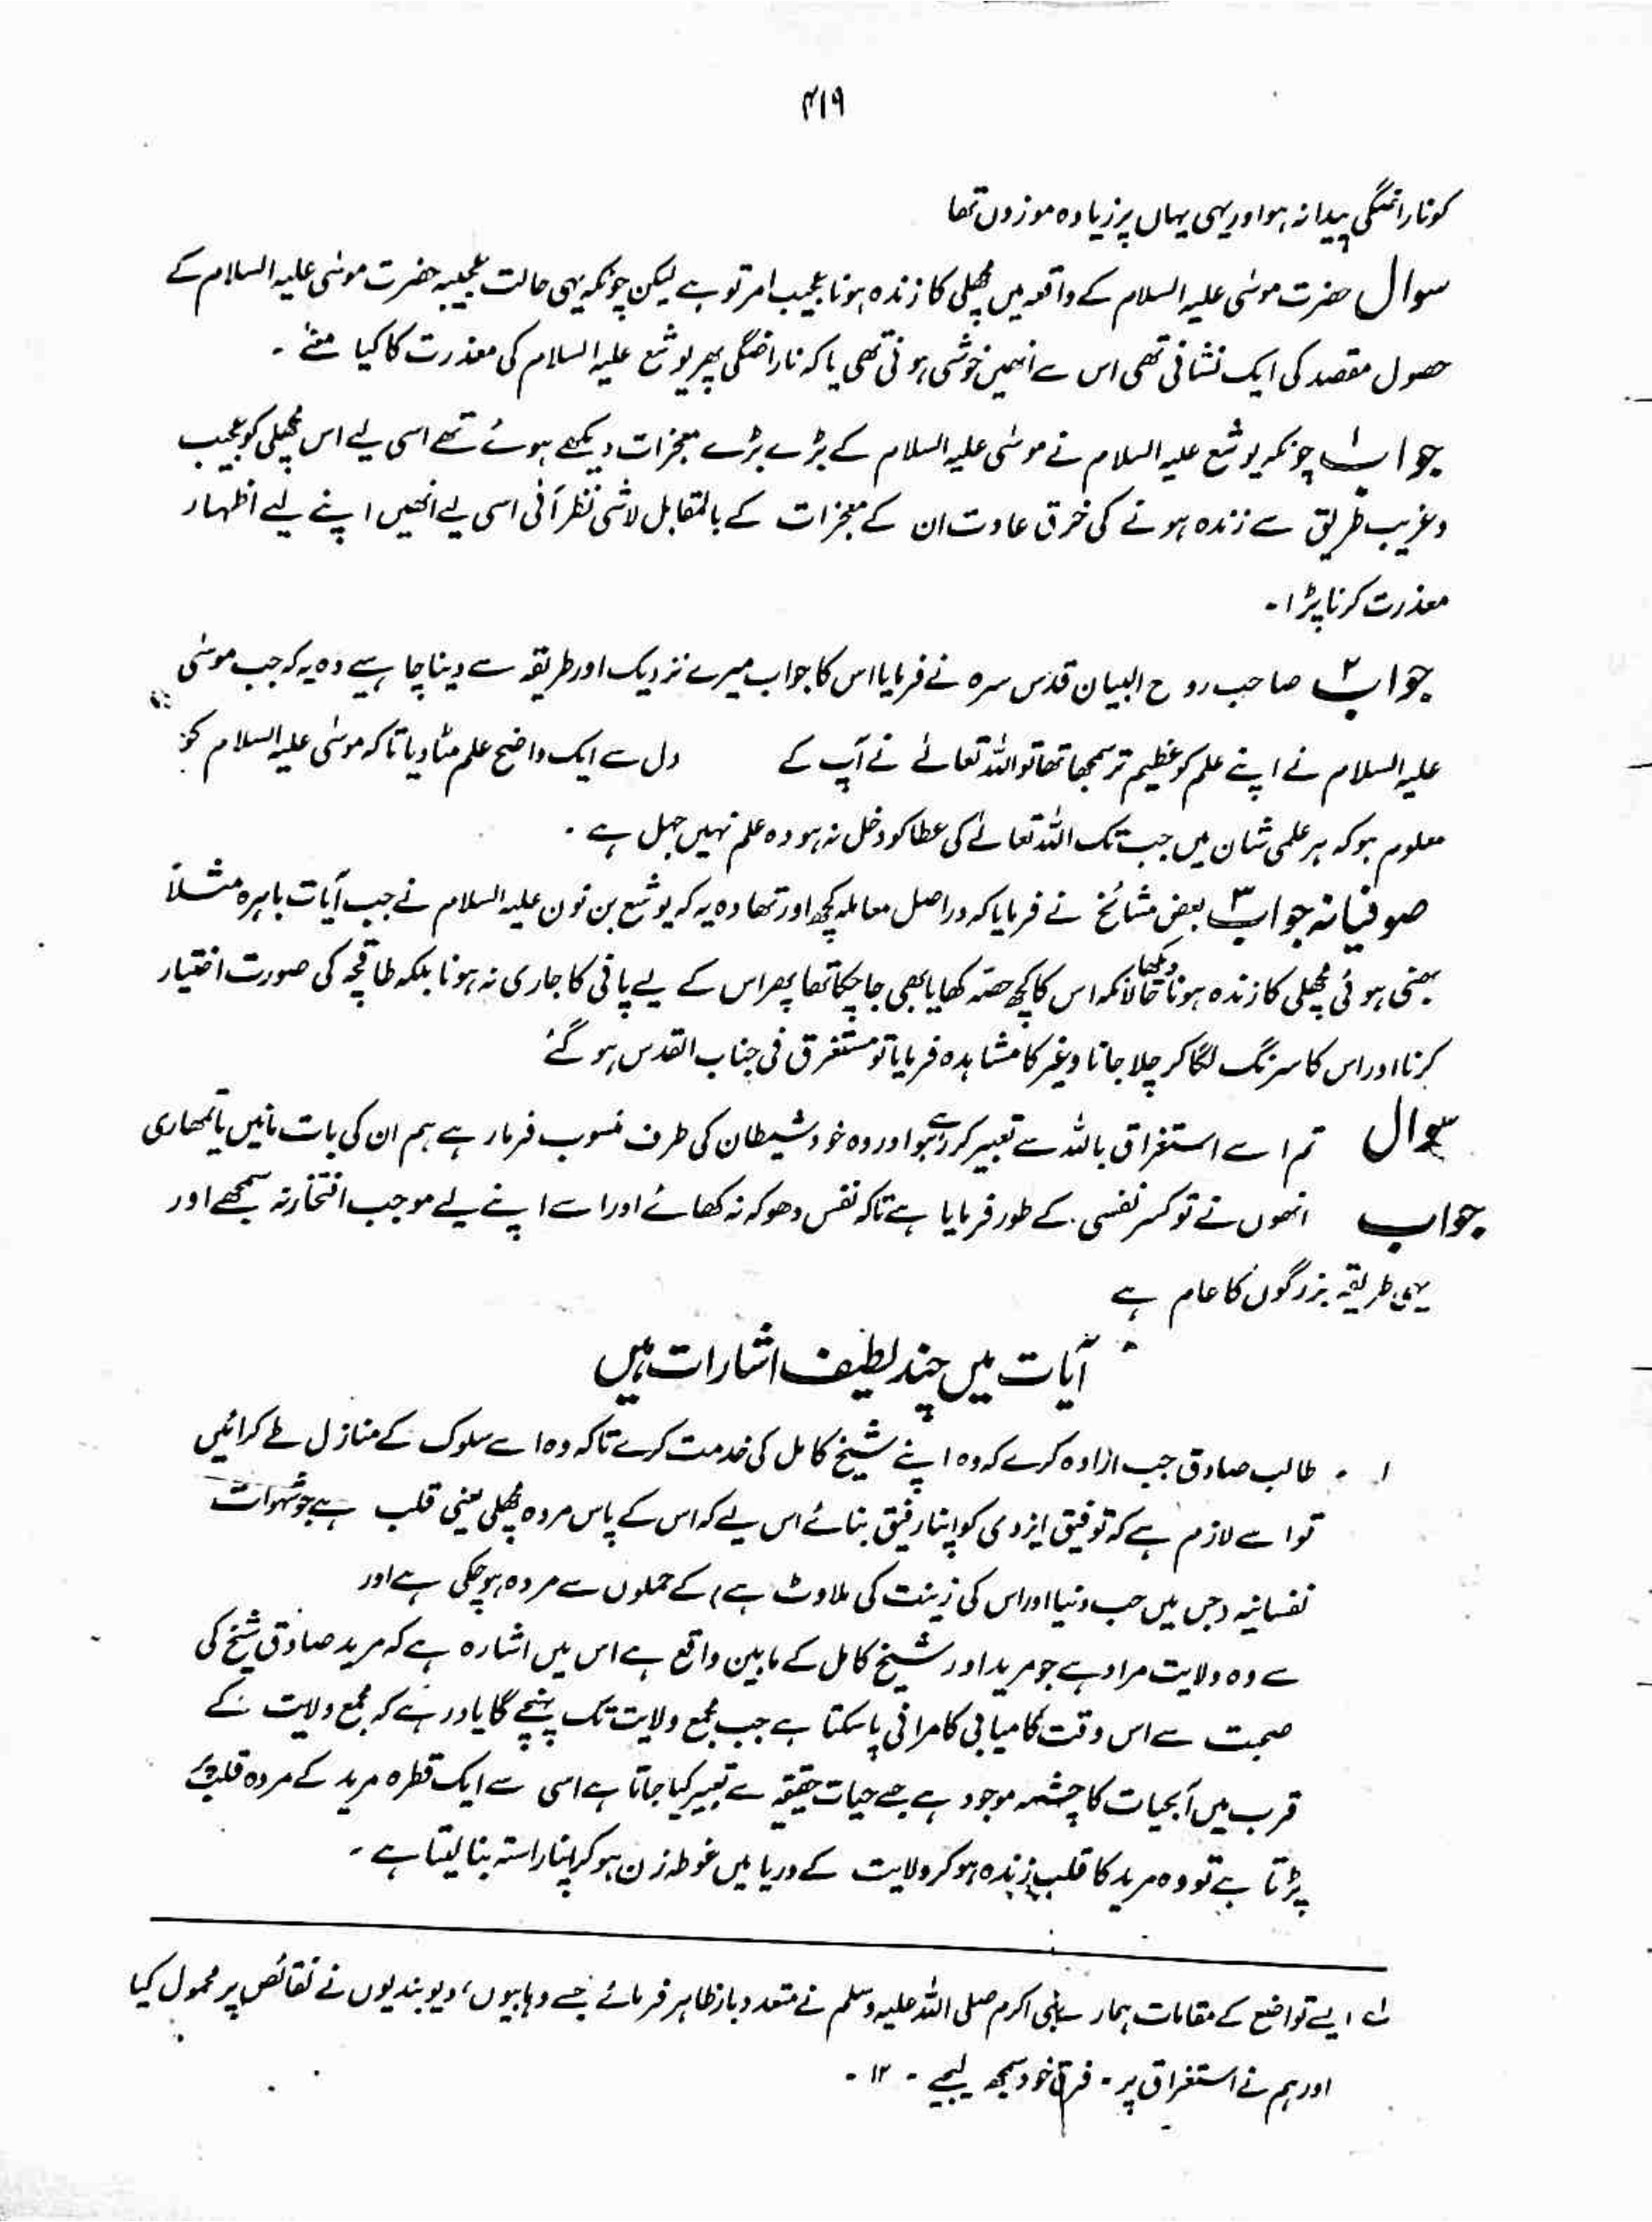 ۴۱۹
کو ناراضگی پیدا نہ ہو اور یہی یہاں پر زیادہ موزوں تھا
سوال حضرت موسٰی علیہ السلام کے واقعہ میں مچھلی کا زندہ ہونا عجیب امر تو ہے لیکن چونکہ یہی حالت عجیبہ حضرت موسٰی علیہ السلام کے
حصول مقصد کی ایک نشانی تھی اس سے انھیں خوشی ہونی تھی یا کہ ناراضگی پھر یوشع علیہ السلام کی معذرت کا کیا معنےٰ ۔
جواب ۱ چونکہ یوشع علیہ السلام نے موسٰی علیہ السلام کے بڑے بڑے معجزات دیکھے ہوئے تھے اسی لیے اس مچھلی کو عجیب
و غریب طریق سے زندہ ہونے کی خرق عادت ان کے معجزات کے بالمقابل لاشی نظر آئی اسی لیے انھیں اپنے لیے اظہار
معذرت کرنا پڑا ۔
جواب ۲ صاحب روح البیان قدس سرہ نے فرمایا اس کا جواب میرے نزدیک اور طریقہ سے دینا چاہیے وہ یہ کہ جب موسٰی
علیہ السلام نے اپنے علم کو عظیم تر سمجھا تھا تو اللہ تعالےٰ نے آپ کے دل سے ایک واضح علم مٹا دیا تاکہ موسٰی علیہ السلام کو
معلوم ہو کہ ہر علمی شان میں جب تک اللہ تعالےٰ کی عطا کو دخل نہ ہو وہ علم نہیں جہل ہے ۔
صوفیانہ جواب ۳ بعض مشائخ نے فرمایا کہ دراصل معاملہ کچھ اور تھا وہ یہ کہ یوشع بن نون علیہ السلام نے جب آیات باہرہ مثلاً
بھنی ہوئی مچھلی کا زندہ ہونا دیکھا حالانکہ اس کا کچھ حصّہ کھایا بھی جا چکا تھا پھر اس کے لیے پانی کا جاری نہ ہونا بلکہ طاقچہ کی صورت اختیار
کرنا اور اس کا سرنگ لگا کر چلا جانا وغیر کا مشاہدہ فرمایا تو مستغرق فی جناب القدس ہو گئے
سوال تم اسے استغراق باللہ سے تعبیر کر رہے ہو اور وہ خود شیطان کی طرف منسوب فرما رہے ہم ان کی بات مانیں یا تمھاری
جواب انھوں نے تو کسر نفسی کے طور فرمایا ہے تاکہ نفس دھوکہ نہ کھائے اور اسے اپنے لیے موجب افتخار نہ سمجھے اور
یہی طریقہ بزرگوں کا عام ہے
آیات میں چند لطیف اشارات ہیں
۱ ۔ طالب صادق جب ارادہ کرے کہ وہ اپنے شیخ کامل کی خدمت کرے تاکہ وہ اسے سلوک کے منازل طے کرائیں
تو اسے لازم ہے کہ توفیق ایزدی کو اپنا رفیق بنائے اس لیے کہ اس کے پاس مردہ مچھلی یعنی قلب ہے جو شہوات
نفسانیہ (جس میں حب دنیا اور اس کی زینت کی ملاوٹ ہے) کے حملوں سے مردہ ہو چکی ہے اور
سے وہ ولایت مراد ہے جو مرید اور شیخ کامل کے مابین واقع ہے اس میں اشارہ ہے کہ مرید صادق شیخ کی
صحبت سے اس وقت کامیابی کامرانی پا سکتا ہے جب مجمع ولایت تک پہنچے گا یاد رہے کہ مجمع ولایت کے
قرب میں آبحیات کا چشمہ موجود ہے جسے حیات حقیقیہ سے تعبیر کیا جاتا ہے اسی سے ایک قطرہ مرید کے مردہ قلب پر
پڑتا ہے تو وہ مرید کا قلب زندہ ہو کر ولایت کے دریا میں غوطہ زن ہو کر اپنا راستہ بنا لیتا ہے ۔
لے ایسے تواضع کے مقامات ہمارے نبی اکرم صلی اللہ علیہ وسلم نے متعدد بار ظاہر فرمائے جسے وہابیوں، دیوبندیوں نے نقائص پر محمول کیا
اور ہم نے استغراق پر ۔ فرق خود سمجھ لیجیے ۔ ۱۲ ۔